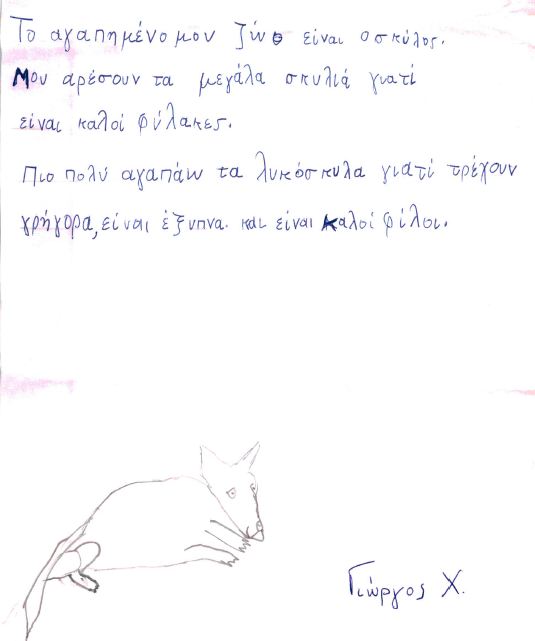 Το αγαπημένο μου ζώο είναι ο σκύλος.
Μου αρέσουν τα μεγάλα σκυλιά γιατί
είναι καλοί φύλακες.
Πιο πολύ αγαπάω τα λυκόσκυλα γιατί τρέχουν
γρήγορα, είναι έξυπνα. και είναι καλοί φίλοι.
Γιώργος Χ.